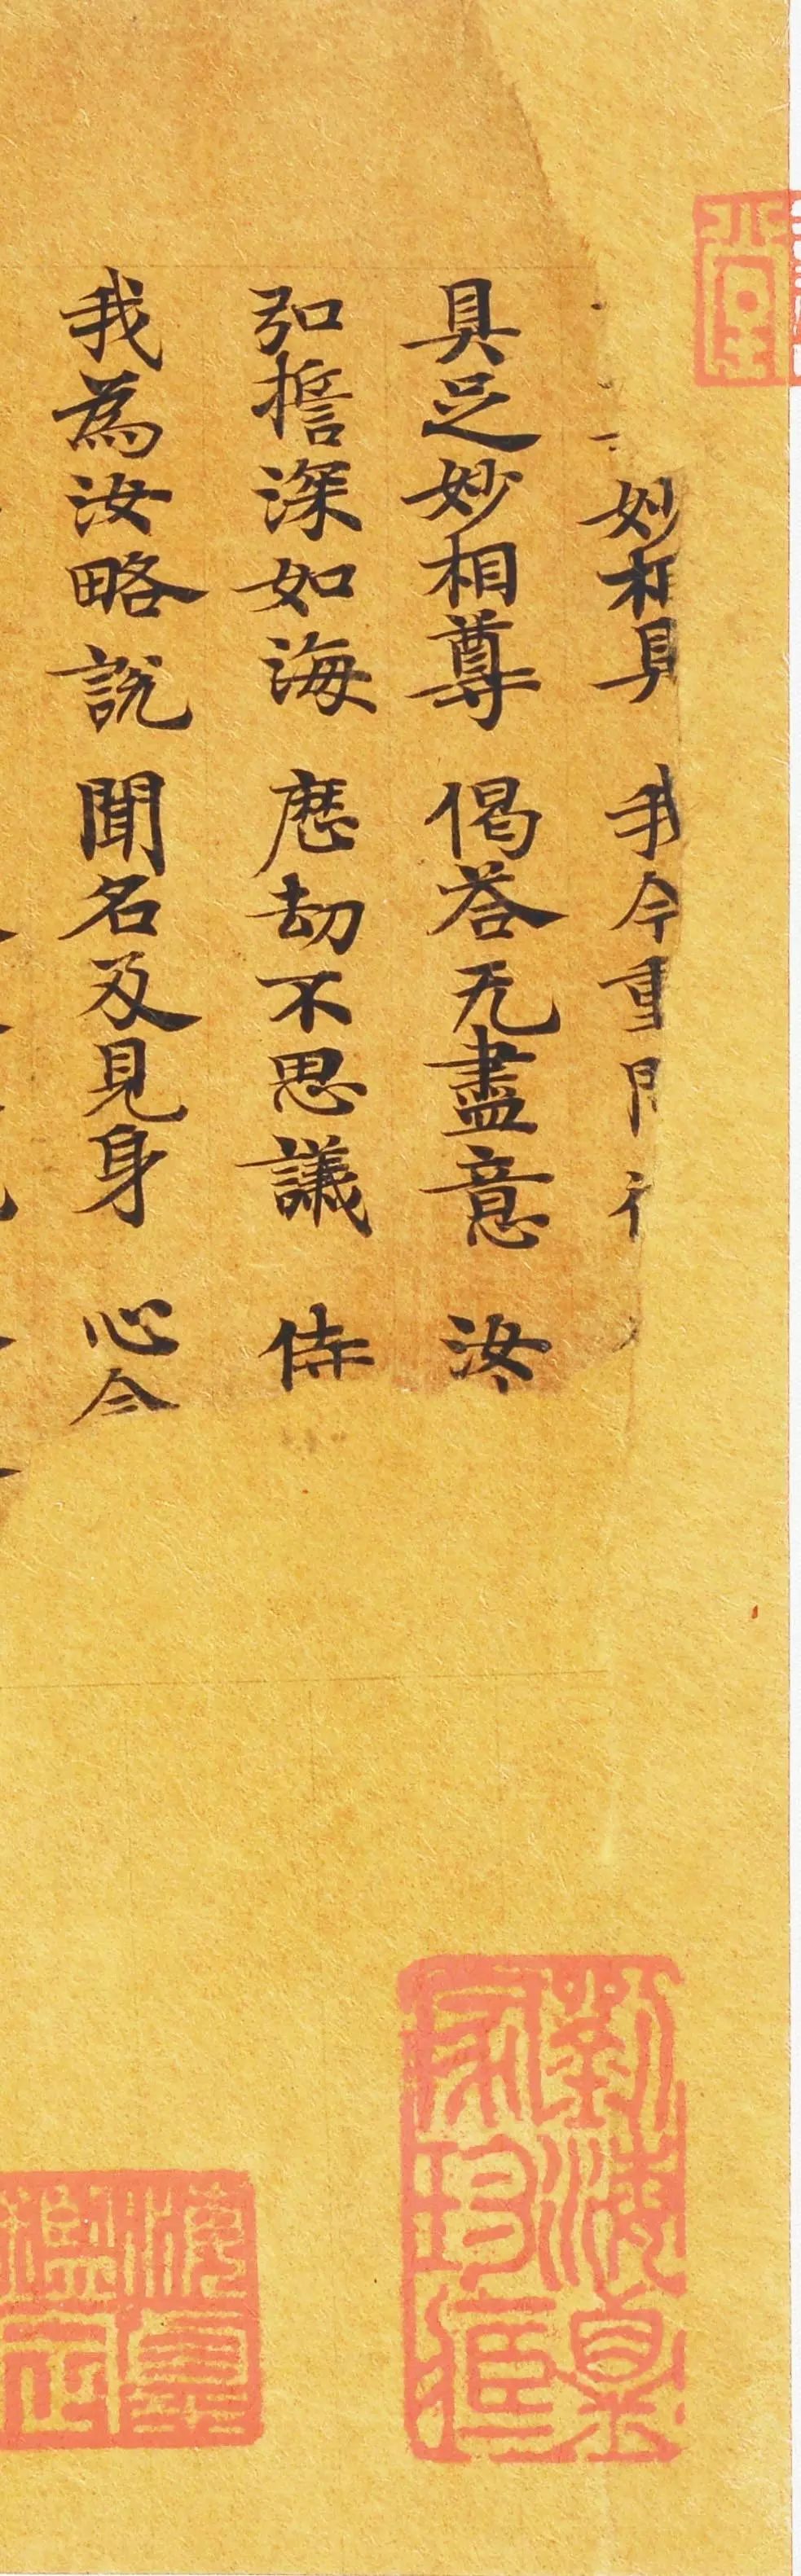 妙相具 我今重問
具足妙相尊 偈荅无盡意 汝
弘擔深如海 歷劫不思議 侍
我為汝略說 聞名及見身 心今
堂
劉海粟家珍藏